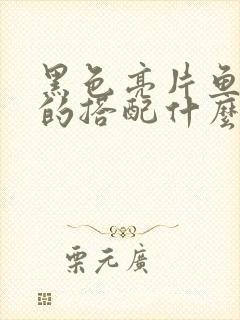 黑色亮片鱼
的搭配什麼
栗元廣